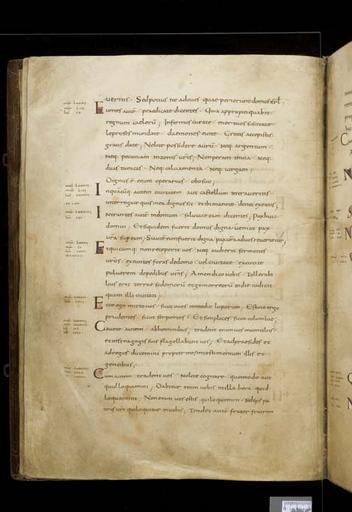 ueritis · Sed potius ite ad oues quae perierunt domus isrl ·
Euntes autē praedicate dicentes · Quia appropinquabit
regnum caelorū; Infirmos curate · mortuos suscitate
leprosos mundate · daemones eicite · Gratis accepistis
gratis date; Nolite possidere aurū · Neq; argentum
Neq; pecuniam in zonis uris; Non peram in uia · Neq;
duas tunicas · Neq; calciamenta · Neq; uirgam;
Dignus ē enim operarius cibo suo;
In quacumq; autem ciuitatem aut castellum intraueritis
interrogate quis in ea dignus sit · et ibi manete donec exeatis;
Intrantes autē in domum · salutate eam dicentes; Pax huic
domui; Et siquidem fuerit domus digna · ueniet pax
ura super eam; Si autē non fuerit digna · pax ura ad uos reuertetur;
Et quicumq; non receperit uos · Neq; audierit sermones
uros · exeuntes foras de domo uel ciuitate · excutite
puluerem de pedibus uris; Amen dico uobis · Tollerabi
lius erit terrae sodomorū et gomorreorū in die iudicii
quam illi ciuitati;
Ecce ego mitto uos · sicut oues in medio luporum; Estote ergo
prudentes · sicut serpentes · Et simplices sicut columbae;
Cauete autem ab hominibus; tradent enim uos in conciliis
et in synagogis suis flagellabunt uos; Et ad praesides et
ad reges ducemini propter me; in testimonium illis et
gentibus;
Cum autem tradent uos · Nolite cogitare quomodo aut
quid loquamini; Dabitur enim uobis in illa hora quid
loquamini; Non enim uos estis qui loquimini · Sed sps pa
tris uri qui loquitur in uobis; Tradet autē frater fratrem